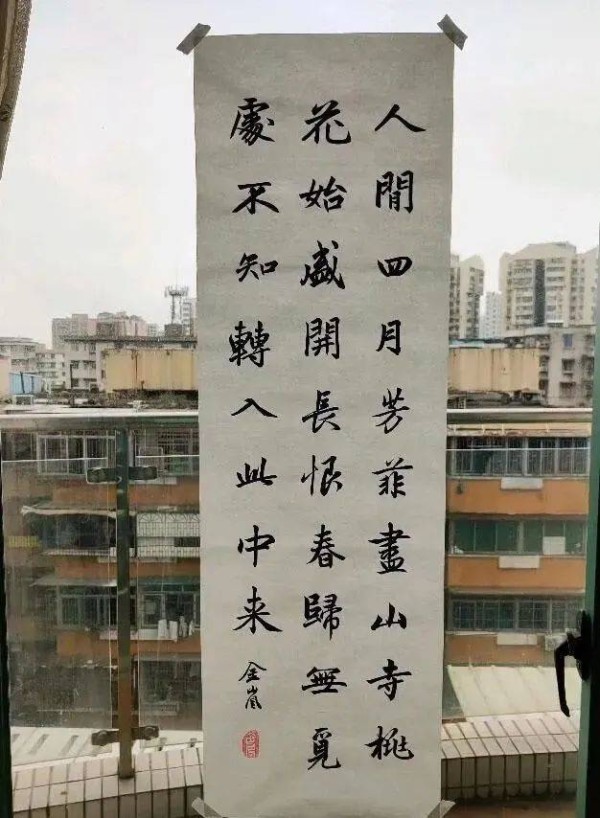 人閒四月芳菲盡山寺桃
花始盛開長恨春歸無覓
處不知轉入此中来
金嵐